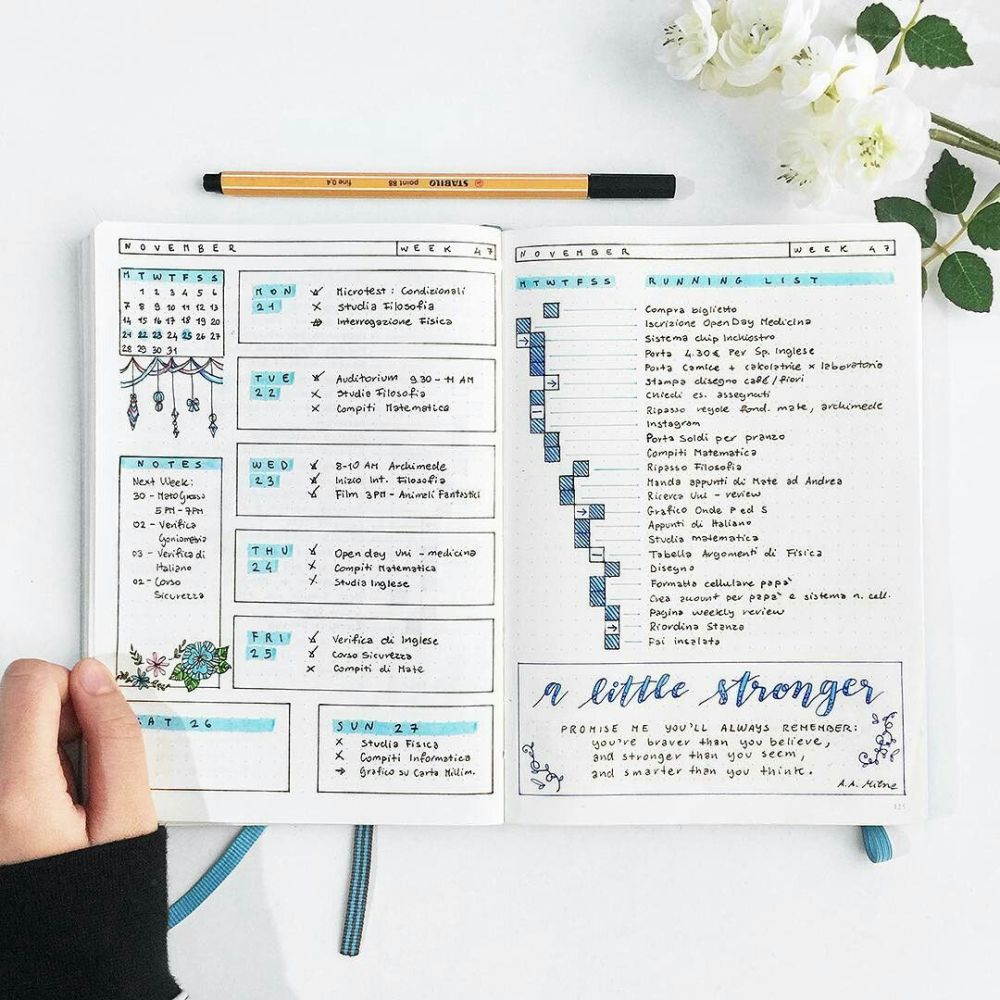 STABILO point 88 fine 0.4
NOVEMBER WEEK 47
M T W T F S S
1 2 3 4 5 6
7 8 9 10 11 12 13
14 15 16 17 18 19 20
21 22 23 24 25 26 27
28 29 30 31
NOTES
Next Week:
30 - MatoGrosso
5 PM - 7PM
02 - Verifica
Goniometria
03 - Verifica di
Italiano
02 - Corso
Sicurezza
MON
21
Microtest: Condizionali
Studia Filosofia
Interrogazione Fisica
TUE
22
Auditorium 9.30 - 11 AM
Studia Filosofia
Compiti Matematica
WED
23
8-10 AM Archimede
Inizio Int. Filosofia
Film 3PM - Animali Fantastici
THU
24
Open day Uni - medicina
Compiti Matematica
Studia Inglese
FRI
25
Verifica di Inglese
Corso Sicurezza
Compiti di Mate
AT 26
SUN 27
Studia Fisica
Compiti Informatica
Grafico su Carta Millim.
NOVEMBER WEEK 47
M T W T F S S RUNNING LIST
Compra biglietto
Iscrizione OpenDay Medicina
Sistema chip Inchiostro
Porta 4.30€ Per Sp. Inglese
Porta Camice + calcolatrice x laboratorio
Stampa disegno café/fiori
Chiedi es. assegnati
Ripasso regole fond. mate, archimede
Instagram
Porta Soldi per pranzo
Compiti Matematica
Ripasso Filosofia
Manda appunti di Mate ad Andrea
Ricerca Uni - review
Grafico Onde P ed S
Appunti di Italiano
Studia matematica
Tabella Argomenti di Fisica
Disegno
Formatta cellulare papà
Crea per papà e sistema n. cell.
Pagina weekly review
Riordina Stanza
Fai insalata
a little stronger
PROMISE ME YOU'LL ALWAYS REMEMBER:
you're braver than you believe,
and stronger than you seem,
and smarter than you think.
A.A. Milne